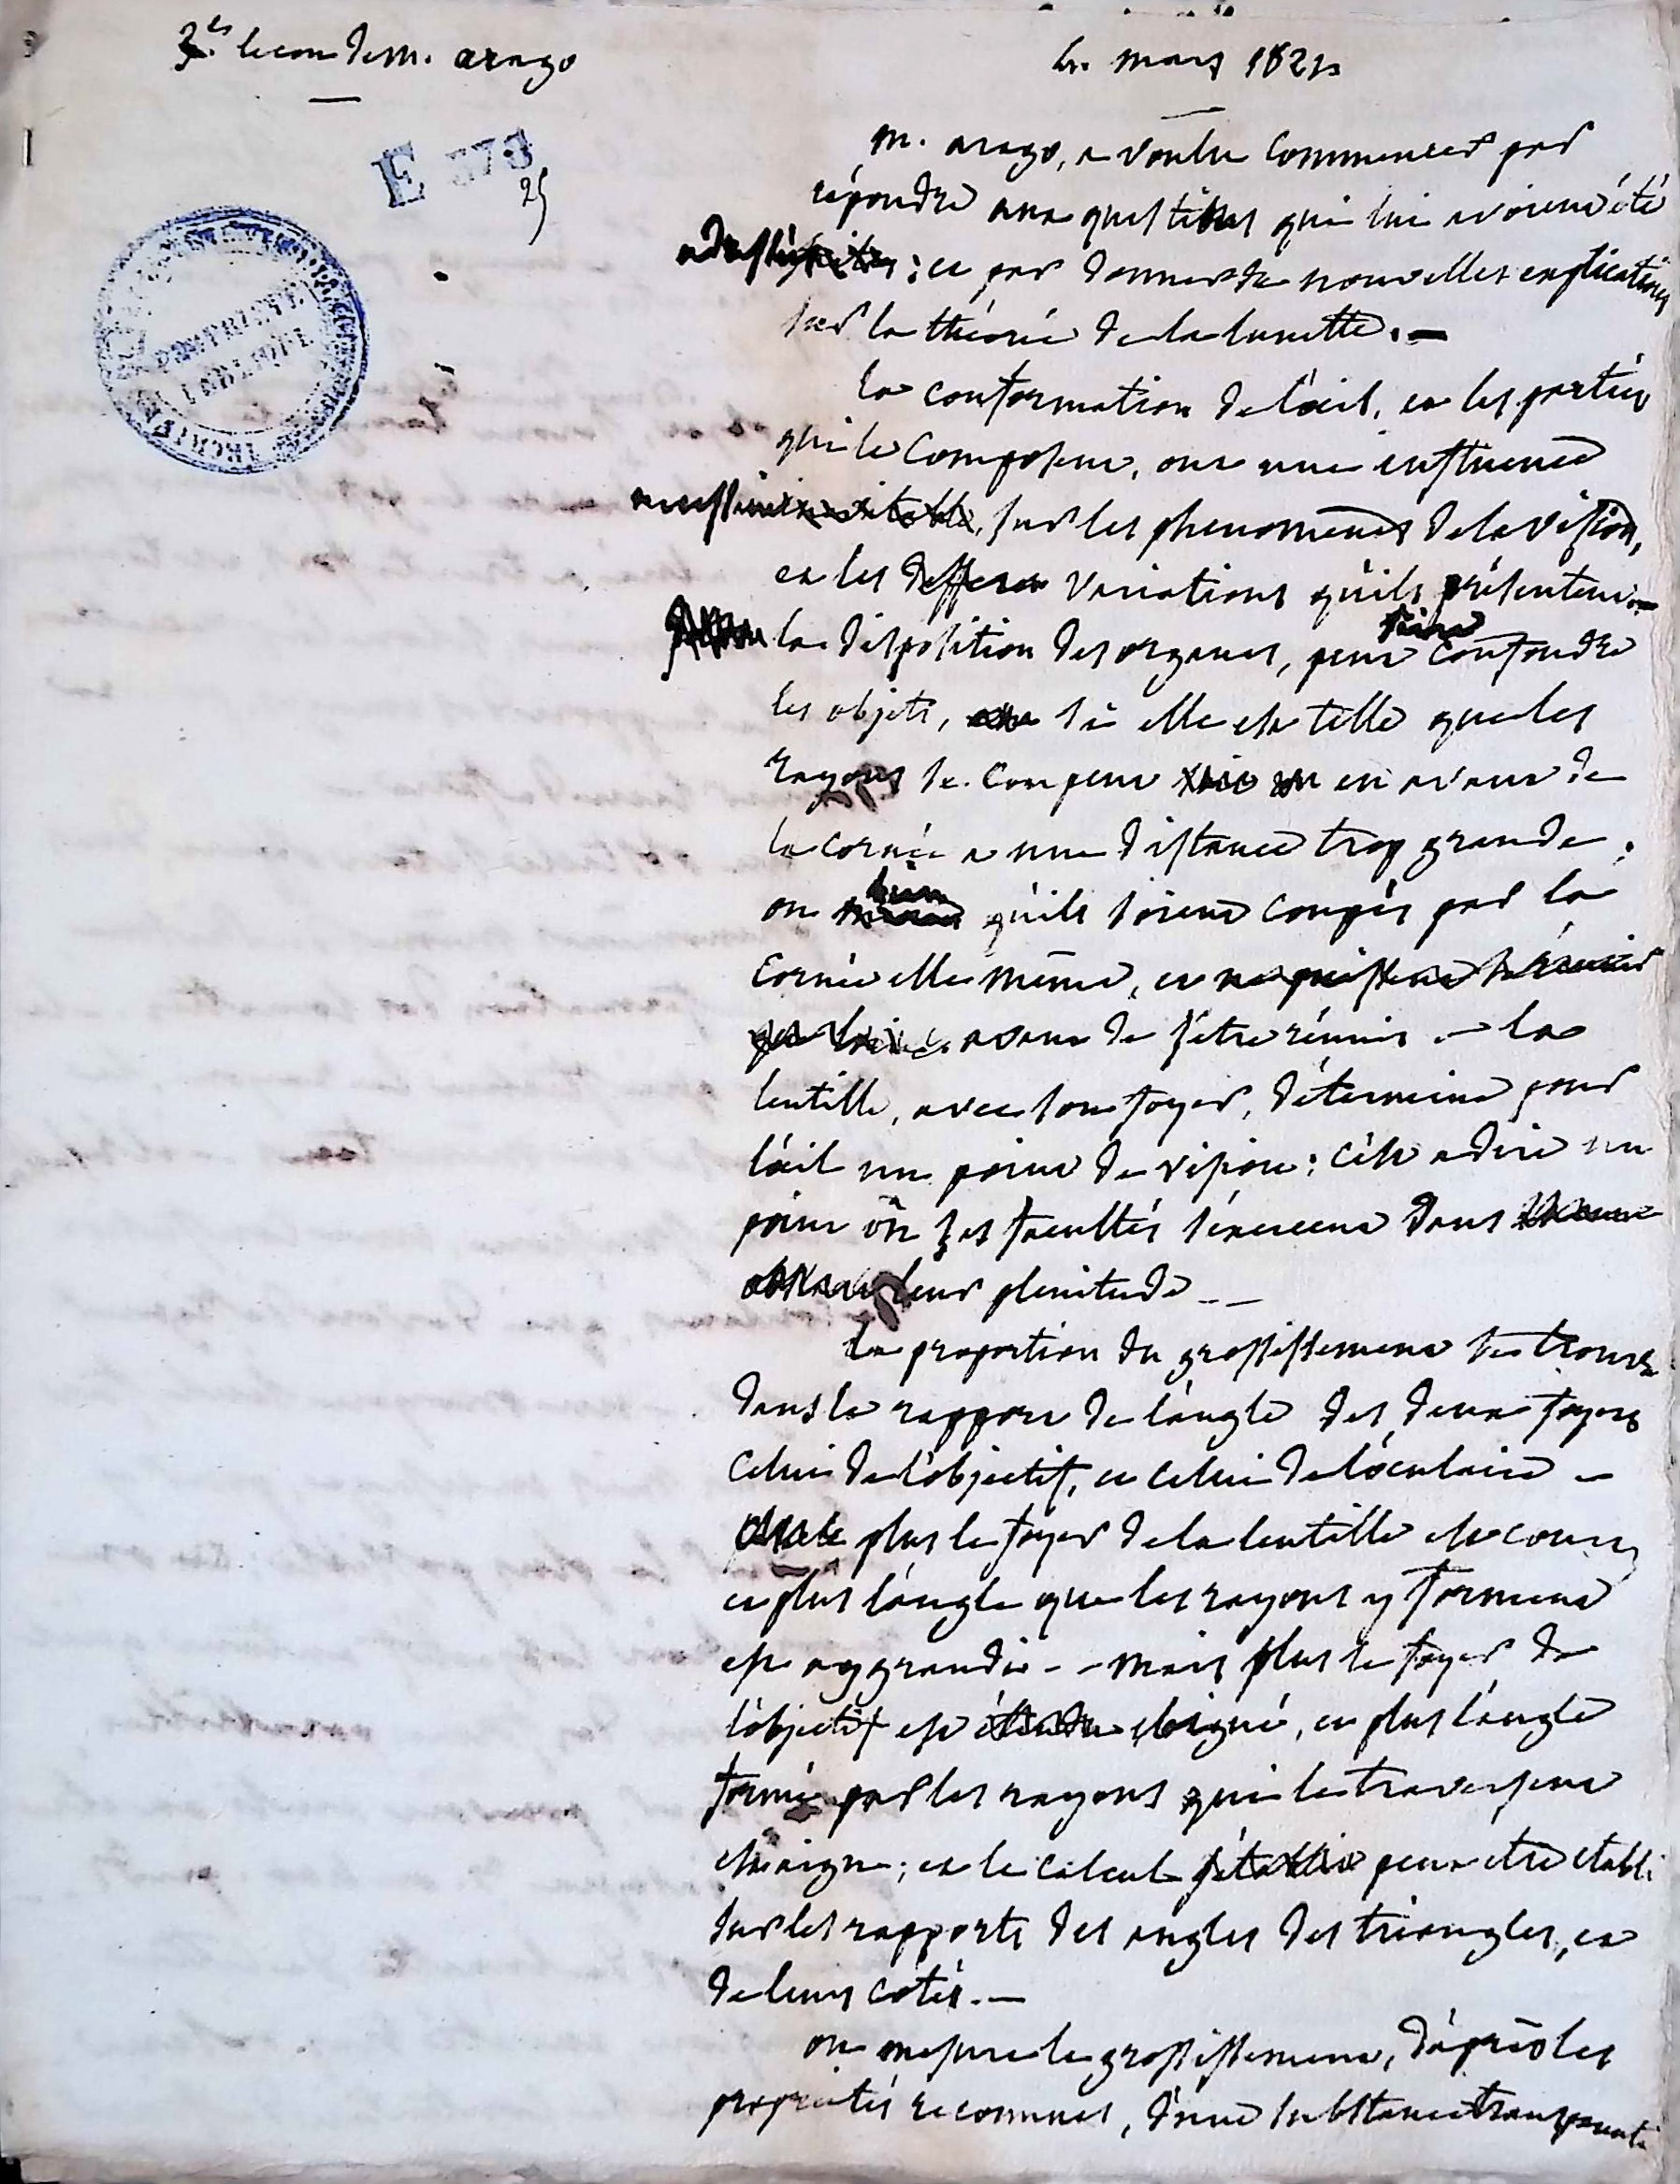 3.e lecon de m. arago
4. mars 182
E 378
25
m. arago, a voulu commencer par
répondre aux questions qui lui avoient été
adressées : et par donner de nouvelles explications
sur la théorie de la lunette. —
la conformation de l'œil, et les parties
qui le composent, ont une influence
nécessaire inévitable, sur les phenomènes de la vision,
et les differen variations qu'ils présentent —
la disposition des organes, peut faire confondre
les objets, si elle est telle que les
rayons se coupent en avant de
la cornée a une distance trop grande ;
ou bien qu'ils soient coupés par la
cornée elle même, et ne puissent se réunir
avant de s'être réunis. — la
lentille, avec son foyer, détermine pour
l'œil un point de vision : c'est a dire un
point où ses facultés s'exercent dans
leur plenitude --
la proportion du grossissement se trouve
dans le rapport de l'angle des deux foyers
celui de l'objectif, et celui de l'oculaire —
plus le foyer de la lentille est court,
et plus l'angle que les rayons y forment
est aggrandi -- mais plus le foyer de
l'objectif est étendu eloigné, et plus l'angle
formé par les rayons qui le traversent
est aigu ; et le calcul s'établir peut etre etabli
sur les rapports des angles des triangles, et
de leurs cotés. —
on mesure le grossissement, d'après les
propriétés reconnues, d'une substance transparente